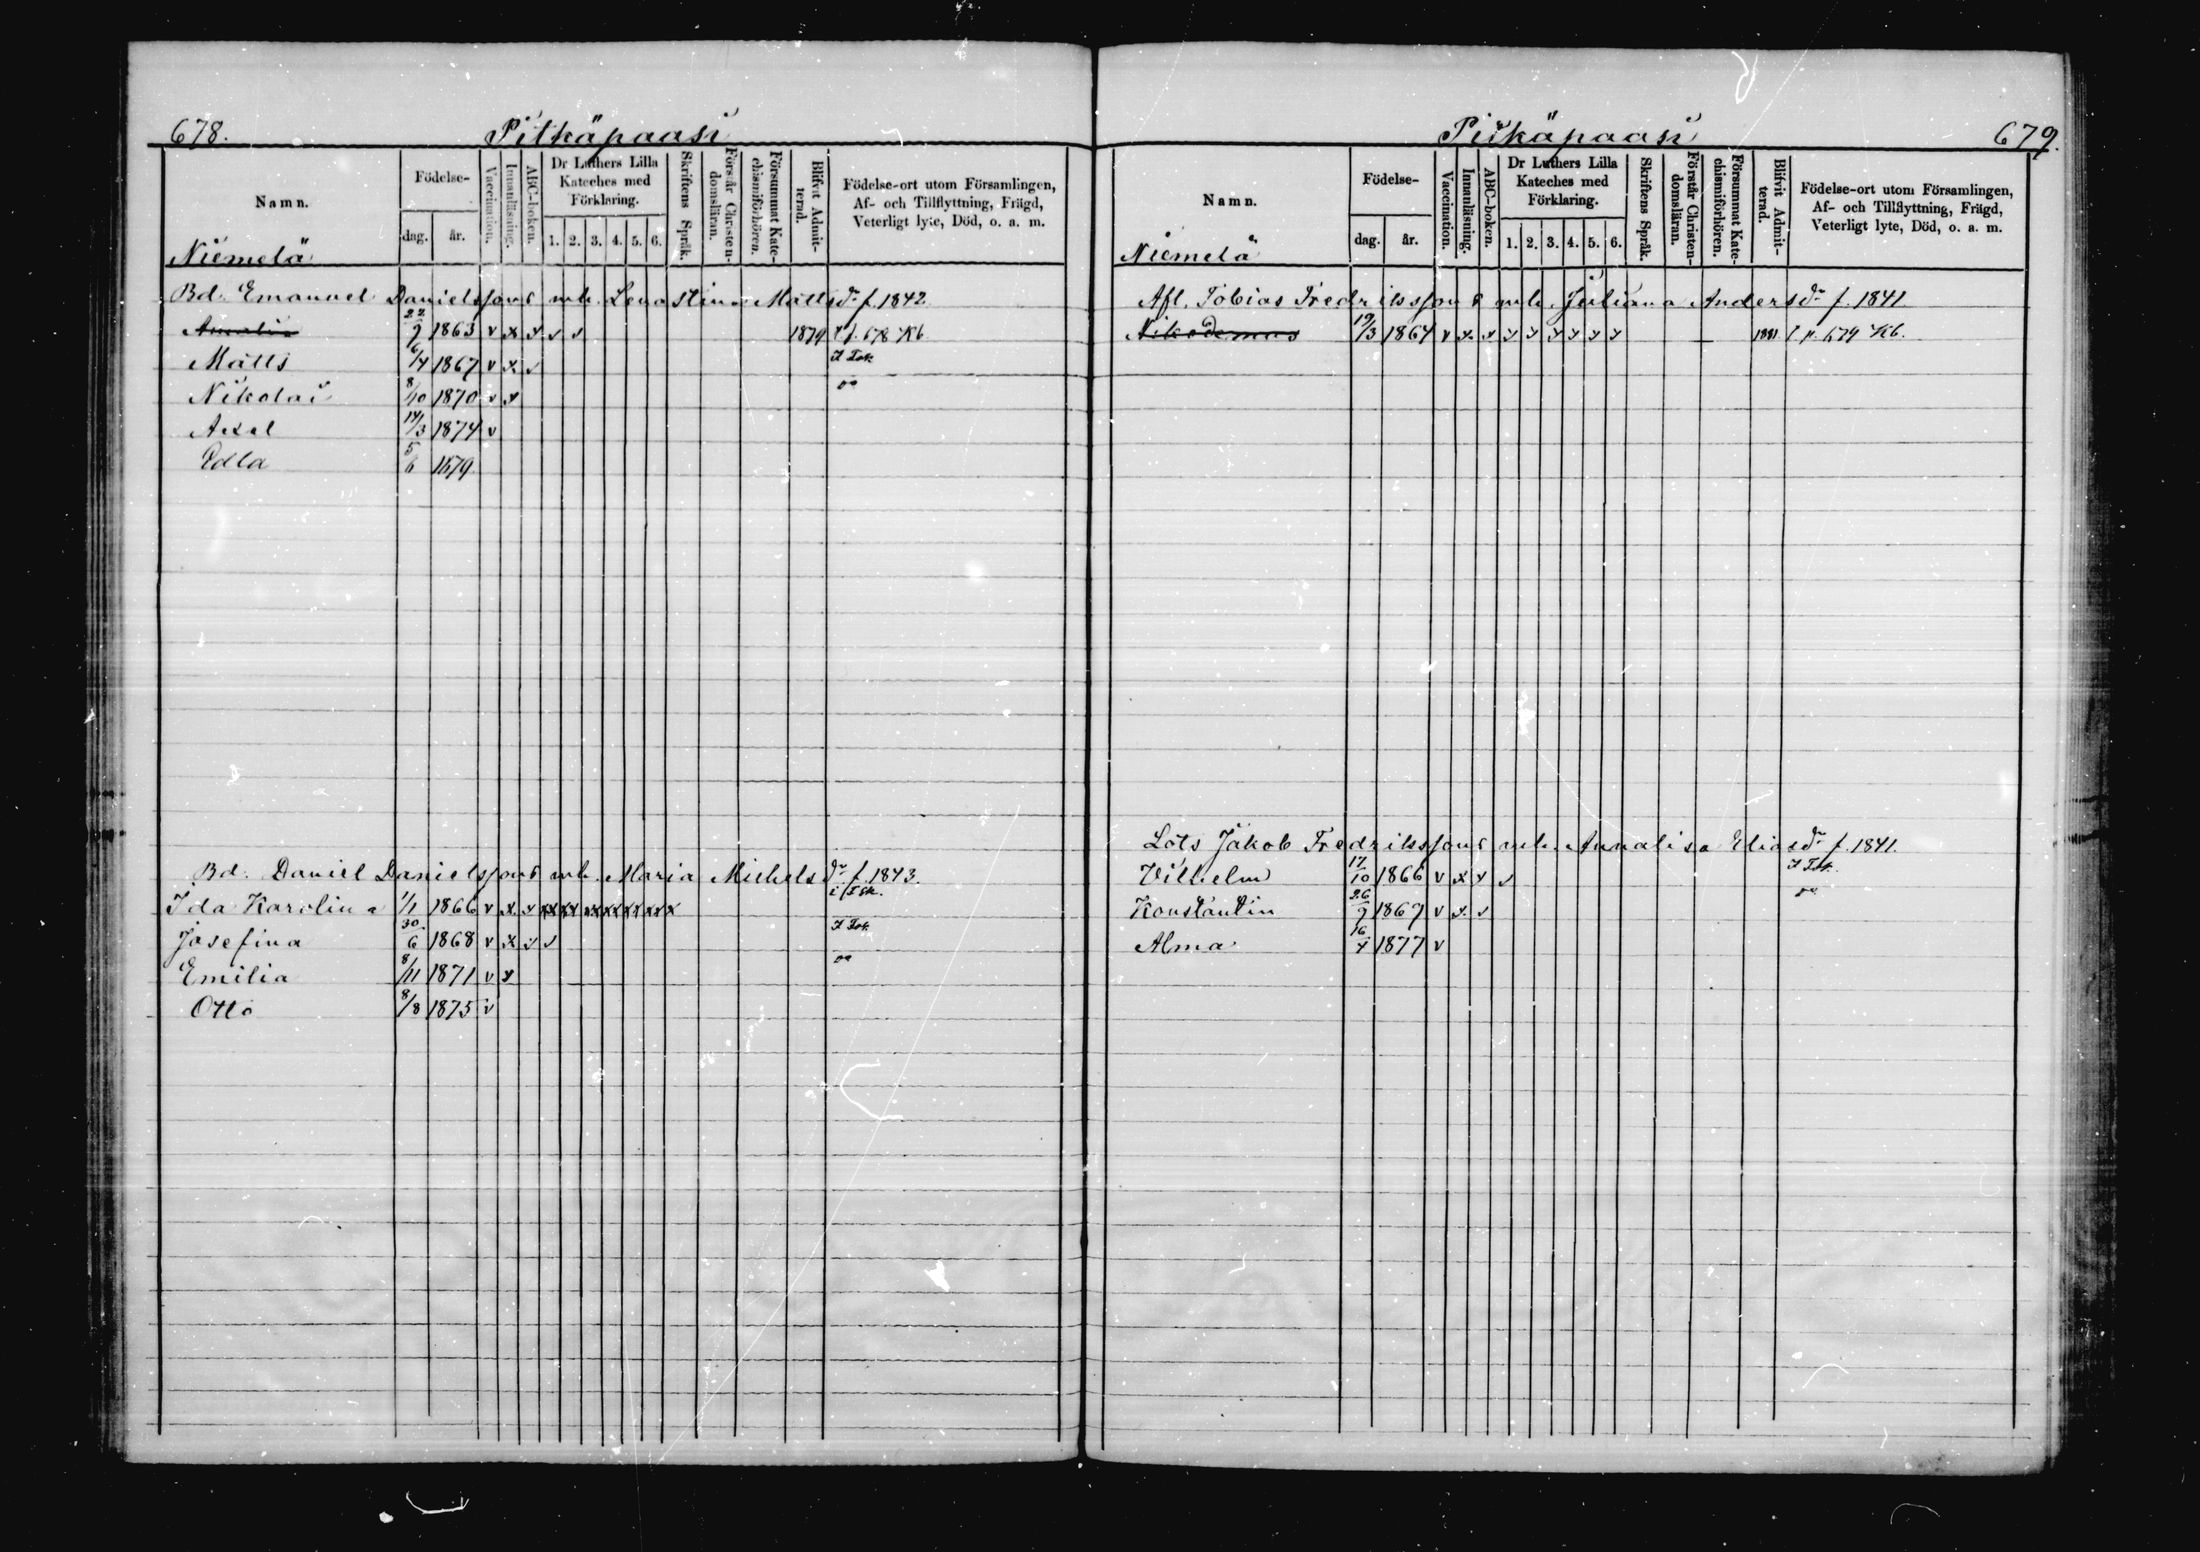 678. Pitkäpaasi
Namn. Födelse- dag. år. Vaccination. Innanläsning. ABC-boken. Dr Luthers Lilla Kateches med Förklaring. 1. 2. 3. 4. 5. 6. Skriftens Språk. Förstår Christendomsläran. Försummat Katechismiförhören. Blifvit Admitterad. Födelse-ort utom Församlingen, Af- och Tillflyttning, Frägd, Veterligt lyte, Död, o. a. m.
Niemelä
Bd. Emanuel Danielssons mh. Lenastina Mattsdr f. 1842.
Amalia 22/9 1863 v x v v v 1879 f. 678 Kb.
Matts 6/4 1867 v x v
Nikolai 8/10 1870 v x
Axel 14/3 1874 v
Edla 5/6 1879
Bd. Daniel Danielssons mh. Maria Michelsdr f. 1843.
Ida Karolina 1/1 1866 v x v xx xx xx xx xx xx x
Josefina 30/6 1868 v x v v
Emilia 8/11 1871 v x
Otto 8/8 1875 v
Pitkäpaasi 679.
Namn. Födelse- dag. år. Vaccination. Innanläsning. ABC-boken. Dr Luthers Lilla Kateches med Förklaring. 1. 2. 3. 4. 5. 6. Skriftens Språk. Förstår Christendomsläran. Försummat Katechismiförhören. Blifvit Admitterad. Födelse-ort utom Församlingen, Af- och Tillflyttning, Frägd, Veterligt lyte, Död, o. a. m.
Niemelä
Afl. Tobias Fredrikssons mh. Juliana Andersdr f. 1841.
Nikodemus 19/3 1864 v x v v v v v v v — 1881. f. p. 679 Kb.
Lots Jakob Fredrikssons mh. Annalisa Eliasdr f. 1841.
Vilhelm 17/10 1866 v x v v
Konstantin 26/9 1869 v x v
Alma 16/4 1877 v